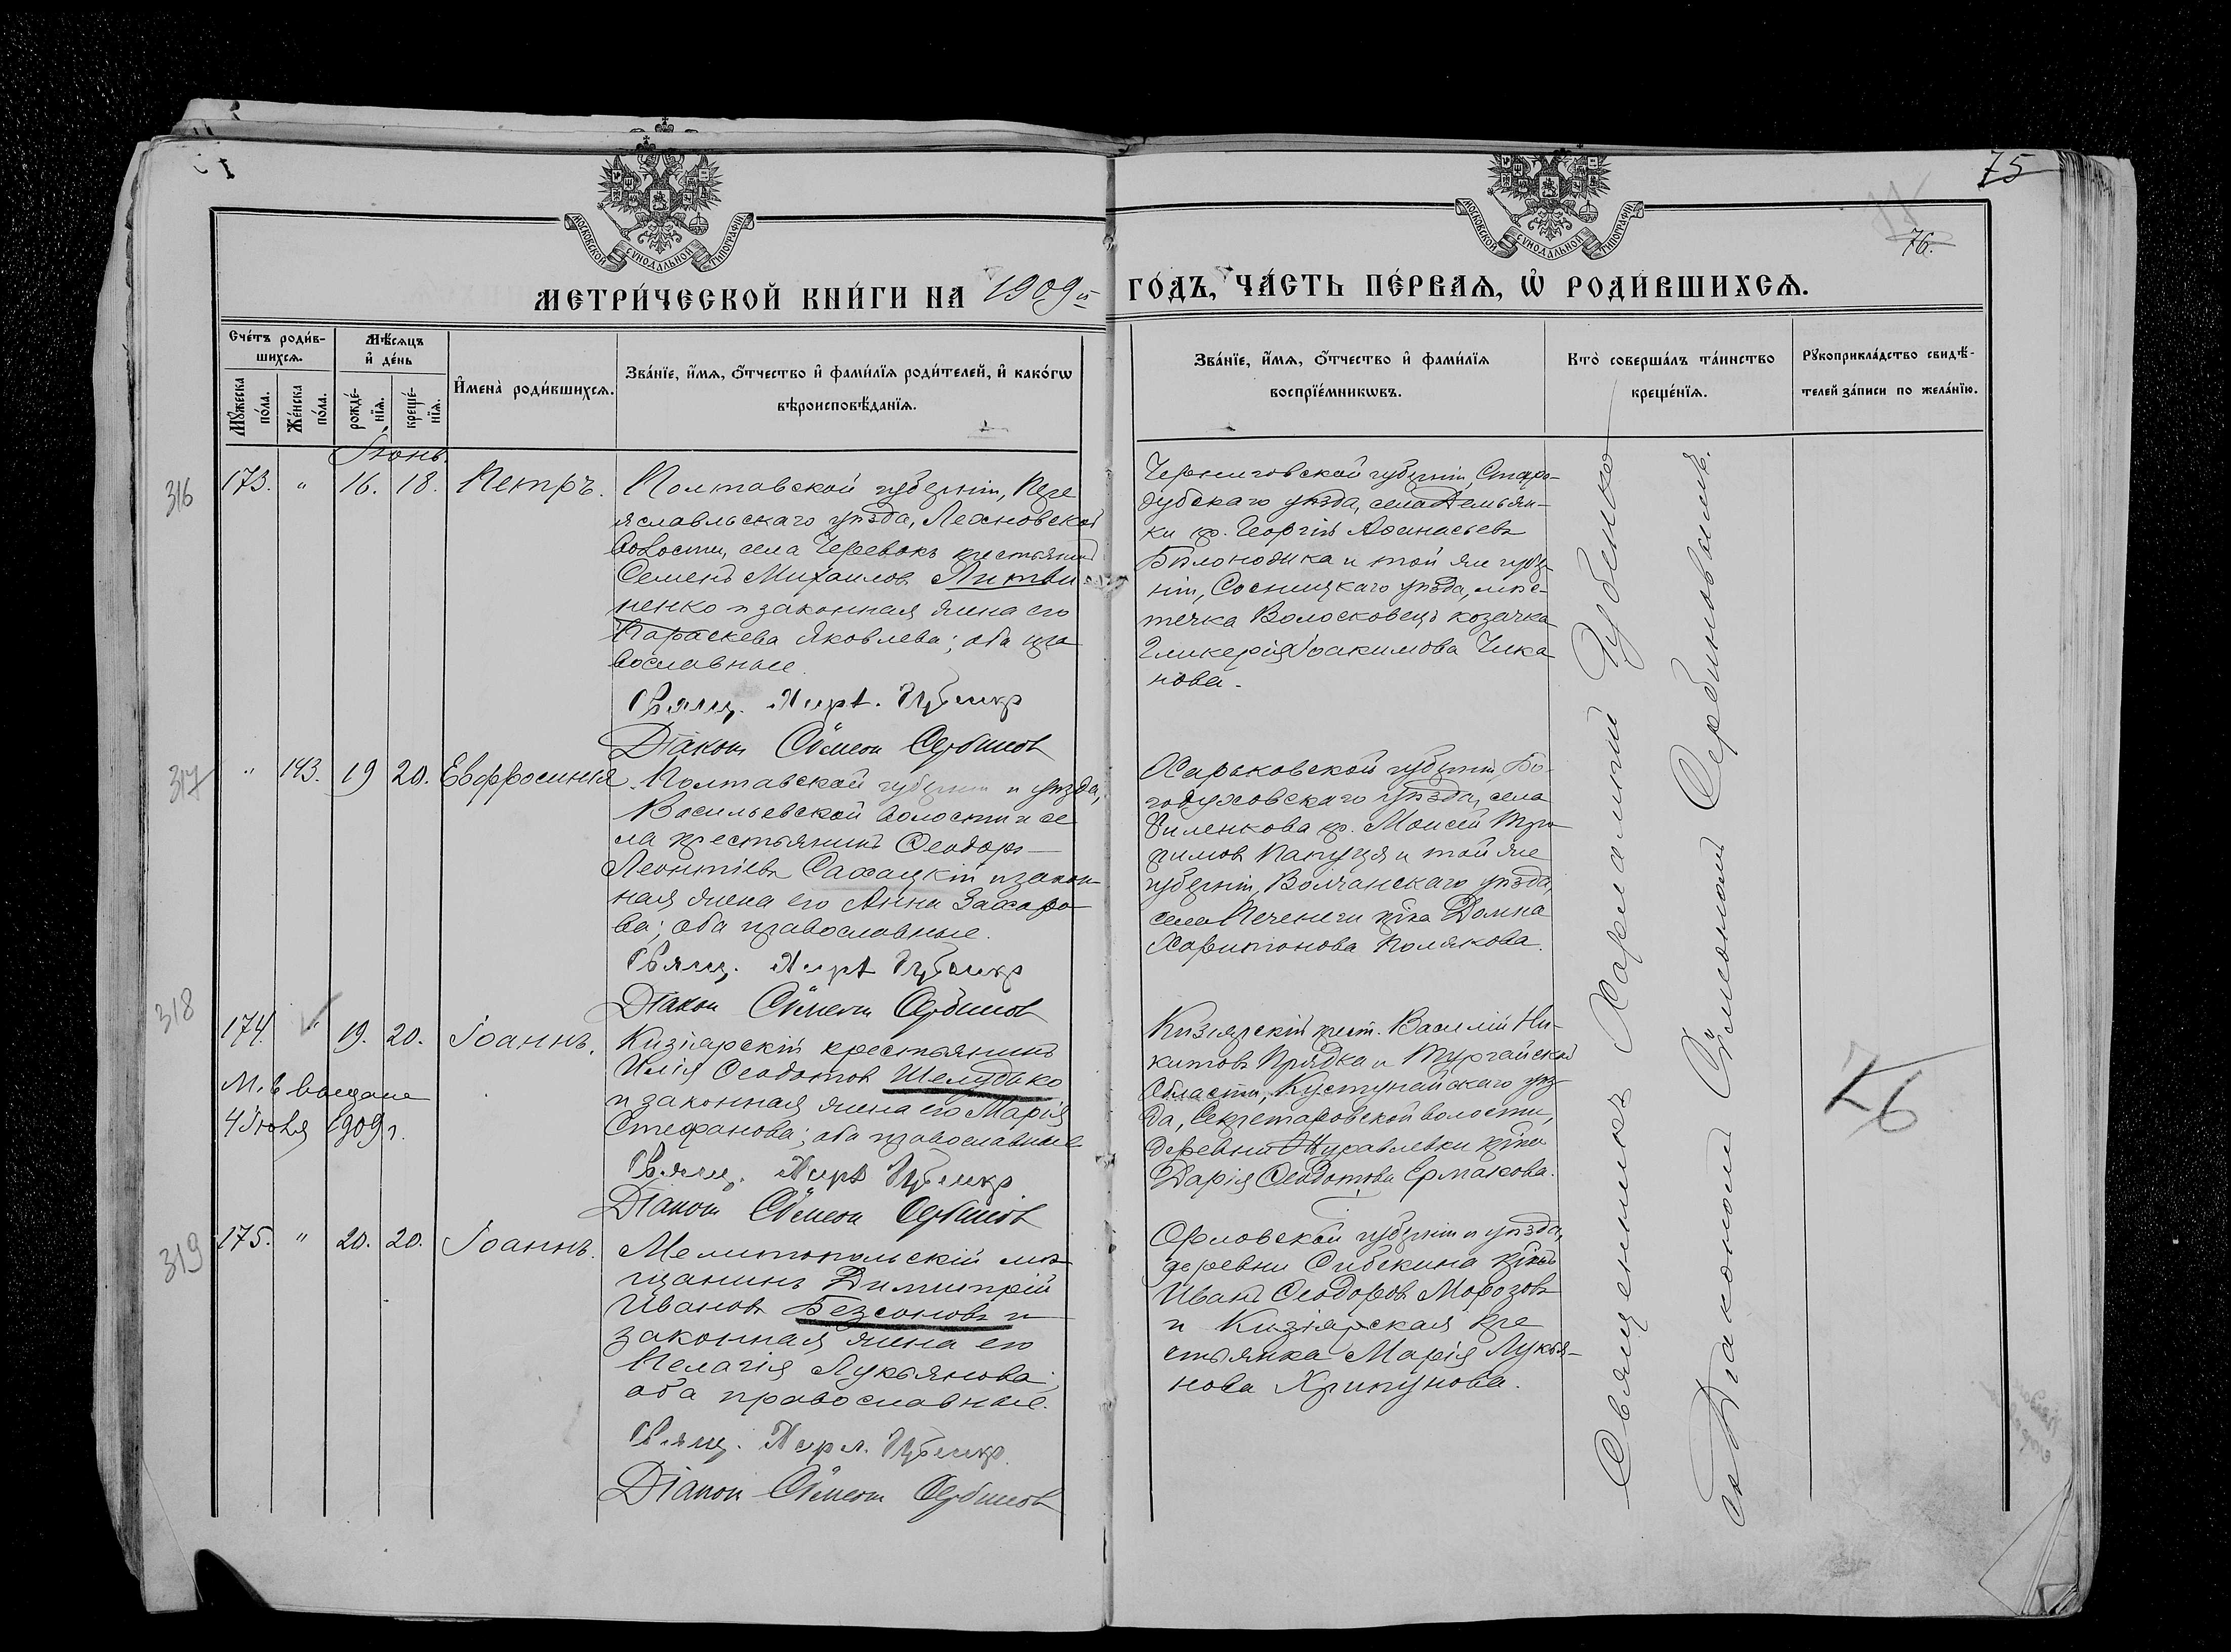 75
76.
МОСКОВСКОЙ СѴНОДАЛЬНОЙ ТИПОГРАФІИ
МОСКОВСКОЙ СѴНОДАЛЬНОЙ ТИПОГРАФІИ
МЕТРИ́ЧЕСКОЙ КНИ́ГИ НА 1909й ГО́ДЪ, ЧА́СТЬ ПЕ́РВАѦ, Ѽ РОДИ́ВШИХСѦ.
Сче́тъ роди́в-
шихсѧ.
Мꙋ́жеска по́ла.
Же́нска по́ла.
Мѣ́сѧцъ
и҆ де́нь
рожде́-
нїѧ.
креще́-
нїѧ.
И҆мена̀ роди́вшихсѧ.
Зва́нїе, и҆́мѧ, ѻ҆́тчество и҆ фами́лїѧ роди́телей, и҆ како́гѡ
вѣроисповѣ́данїѧ.
Зва́нїе, и҆́мѧ, ѻ҆́тчество и҆ фами́лїѧ
воспрїе́мникѡвъ.
Кто̀ соверша́лъ та́инство
креще́нїѧ.
Рꙋкоприкла́дство свидѣ́-
телей за́писи по жела́нїю.
Іюнь.
316
173. " 16. 18. Петръ.
Полтавской губерніи, Пере
яславльскаго уѣзда, Леоновской
волости, села Черевокъ крестьянинъ
Семенъ Михаиловъ Литви
ненко и законная жена его
Параскева Яковлева; оба пра
вославные.
Свящ. Харл. Губенко
Діаконъ Сѵмеонъ Сербиновъ
Черниговской губерніи, Старо-
дубскаго уѣзда, села Демьян-
ки кр. Георгій Аѳанасьевъ
Бѣлоножка и той же губер-
ніи, Сосницкаго уѣзда, мѣс-
течка Волосковецъ козачка
Гликерія Іоакимова Чика
нова.
317
" 143. 19 20. Евфросинія
Полтавской губерніи и уѣзда,
Васильевской волости и се
ла крестьянинъ Ѳеодоръ
Леонтіевъ Сахацкій и закон-
ная жена его Анна Захаро-
ва; оба православные.
Свящ. Харл. Губенко
Діаконъ Сѵмеонъ Сербиновъ
Харьковской губерніи, Бо-
годуховскаго уѣзда, села
кр. Моисей Тро-
фимовъ и той же
губерніи, Волчанскаго уѣзда,
села Печенеги кр-ка Домна
Харитонова Полякова.
318
174. " 19. 20. Іоаннъ.
М. в. выдана
4 Іюля 1909 г.
Кизіярскій крестьянинъ
Илія Ѳеодотовъ Шелудько
и законная жена его Марія
Стефанова; оба православные
Свящ. Харл. Губенко
Діаконъ Сѵмеонъ Сербиновъ
Кизіярскій крест. Василій Ни-
китовъ Прядка и Тургайской
Области, Кустунайскаго уѣз-
да, Секретаровской волости,
деревни Журавлевки кр-ка
Дарія Ѳеодотова Ермакова.
319
175. " 20. 20. Іоаннъ.
Мелитопольскій мѣ-
щанинъ Димитрій
Ивановъ Безсоновъ и
законная жена его
Пелагія Лукьянова;
оба православные.
Свящ. Харл. Губенко
Діаконъ Сѵмеонъ Сербиновъ
Орловской губерніи и уѣзда,
деревни Сибекина кр-нъ
Иванъ Ѳеодоровъ Морозовъ
и Кизіярская кре
стьянка Марія Лукья-
нова Хрипунова.
Священникъ Харлампій Губенко
съ Діакономъ Сѵмеономъ Сербиновымъ.
76